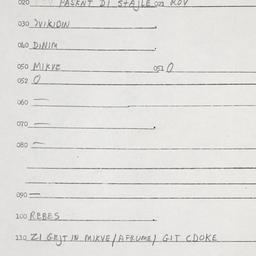 020 PASKNT DI STAJLE 021 ROV
030 ZVIKIDIN
040 DINIM
050 MIKVE 051 0
052 0
060 —
070 —
080 —
090 —
100 REBES
110 ZI GEJT IN MIKVE/AFRUME/ GIT CDOKE